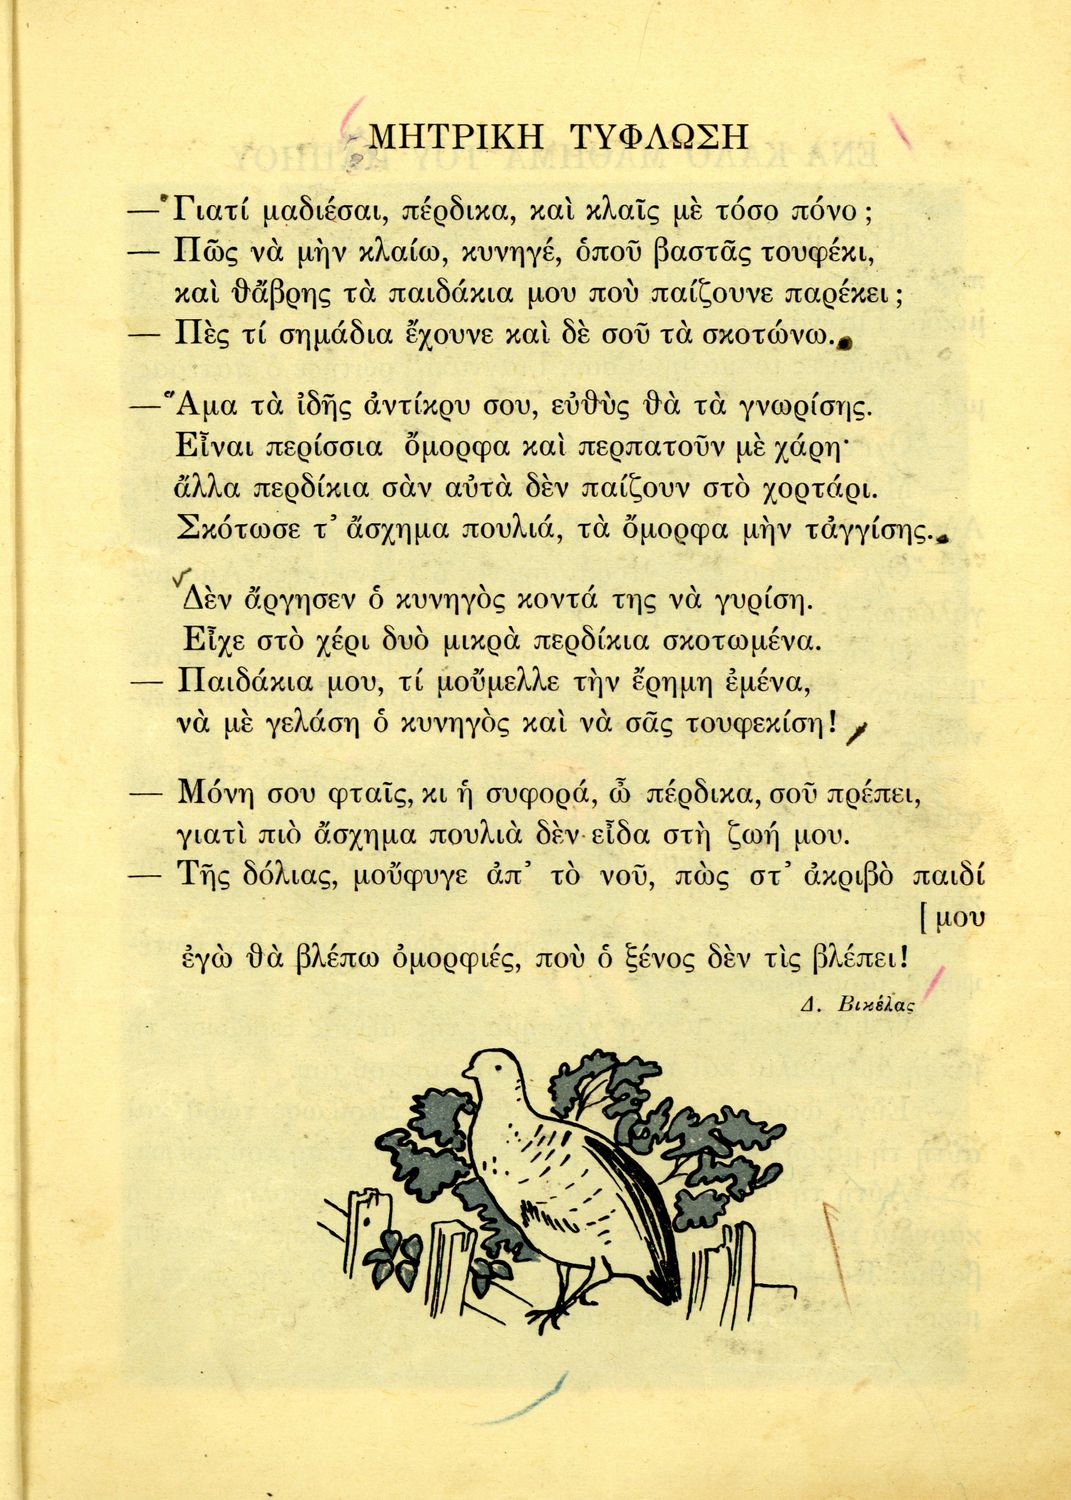 ΜΗΤΡΙΚΗ ΤΥΦΛΩΣΗ
— Γιατί μαδιέσαι, πέρδικα, καὶ κλαῖς μὲ τόσο πόνο;
— Πῶς νὰ μὴν κλαίω, κυνηγέ, ὁποῦ βαστᾶς τουφέκι,
καὶ θἄβρης τὰ παιδάκια μου ποὺ παίζουνε παρέκει;
— Πὲς τί σημάδια ἔχουνε καὶ δὲ σοῦ τὰ σκοτώνω.
— Ἅμα τὰ ἰδῆς ἀντίκρυ σου, εὐθὺς θὰ τὰ γνωρίσης.
Εἶναι περίσσια ὄμορφα καὶ περπατοῦν μὲ χάρη·
ἄλλα περδίκια σὰν αὐτὰ δὲν παίζουν στὸ χορτάρι.
Σκότωσε τ' ἄσχημα πουλιά, τὰ ὄμορφα μὴν τἀγγίσης.
Δὲν ἄργησεν ὁ κυνηγὸς κοντά της νὰ γυρίση.
Εἶχε στὸ χέρι δυὸ μικρὰ περδίκια σκοτωμένα.
— Παιδάκια μου, τί μοὔμελλε τὴν ἔρημη ἐμένα,
νὰ μὲ γελάση ὁ κυνηγὸς καὶ νὰ σᾶς τουφεκίση!
— Μόνη σου φταῖς, κι ἡ συφορά, ὦ πέρδικα, σοῦ πρέπει,
γιατὶ πιὸ ἄσχημα πουλιὰ δὲν εἶδα στὴ ζωή μου.
— Τῆς δόλιας, μοὔφυγε ἀπ' τὸ νοῦ, πὼς στ' ἀκριβὸ παιδί
[μου
ἐγὼ θὰ βλέπω ὀμορφιές, ποὺ ὁ ξένος δὲν τὶς βλέπει!
Δ. Βικέλας